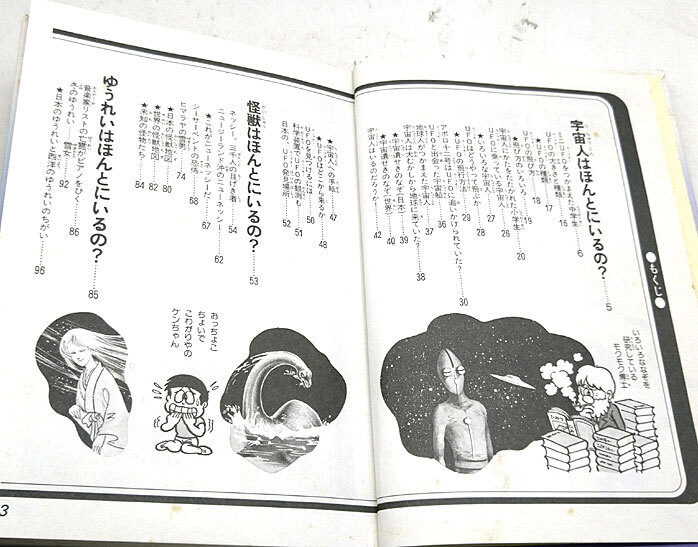 ●もくじ●
宇宙人はほんとにいるの？……5
UFOをつかまえた中学生……6
★UFOの大きさと種類……16
★UFOの種類……17
★UFOの飛びかた……18
★飛び方いろいろ……19
宇宙人にかたをたたかれた小学生……20
UFOに乗っている宇宙人……26
★いろいろな宇宙人……28
UFOはどうやって飛ぶか……27
★UFOの飛行方法……29
アポロ十一号はUFOに追いかけられていた？……30
UFOと出会った宇宙船……36
地球人がつかまえた宇宙人……37
宇宙人はむかしから地球に来ていた？……38
★宇宙遺せきのなぞ（日本）……39
★宇宙遺せきのなぞ（世界）……40
宇宙人はいるのだろうか……42
いろいろななぞを
研究している
モクモク博士
★宇宙人への手紙……47
★UFOはどこから来るか……48
UFOを見つけるには……50
科学装置でUFOの観測も……51
日本の UFO発見場所……52
怪獣はほんとにいるの？……53
ネッシー、三千人の目げき者……54
ニュージーランド沖のニューネッシー……62
★これがニューネッシーだ……67
シーサーペントの恐怖……68
ヒマラヤの雪男……74
★日本の怪獣地図……80
★世界の怪獣地図……82
★未知の怪物たち……84
ゆうれいはほんとにいるの？……85
音楽家リストの亡霊がピアノをひく……86
冬のゆうれい――雪女……92
★日本のゆうれいと西洋のゆうれいのちがい……96
おっちょこ
ちょいで
こわがりやの
ケンちゃん
3